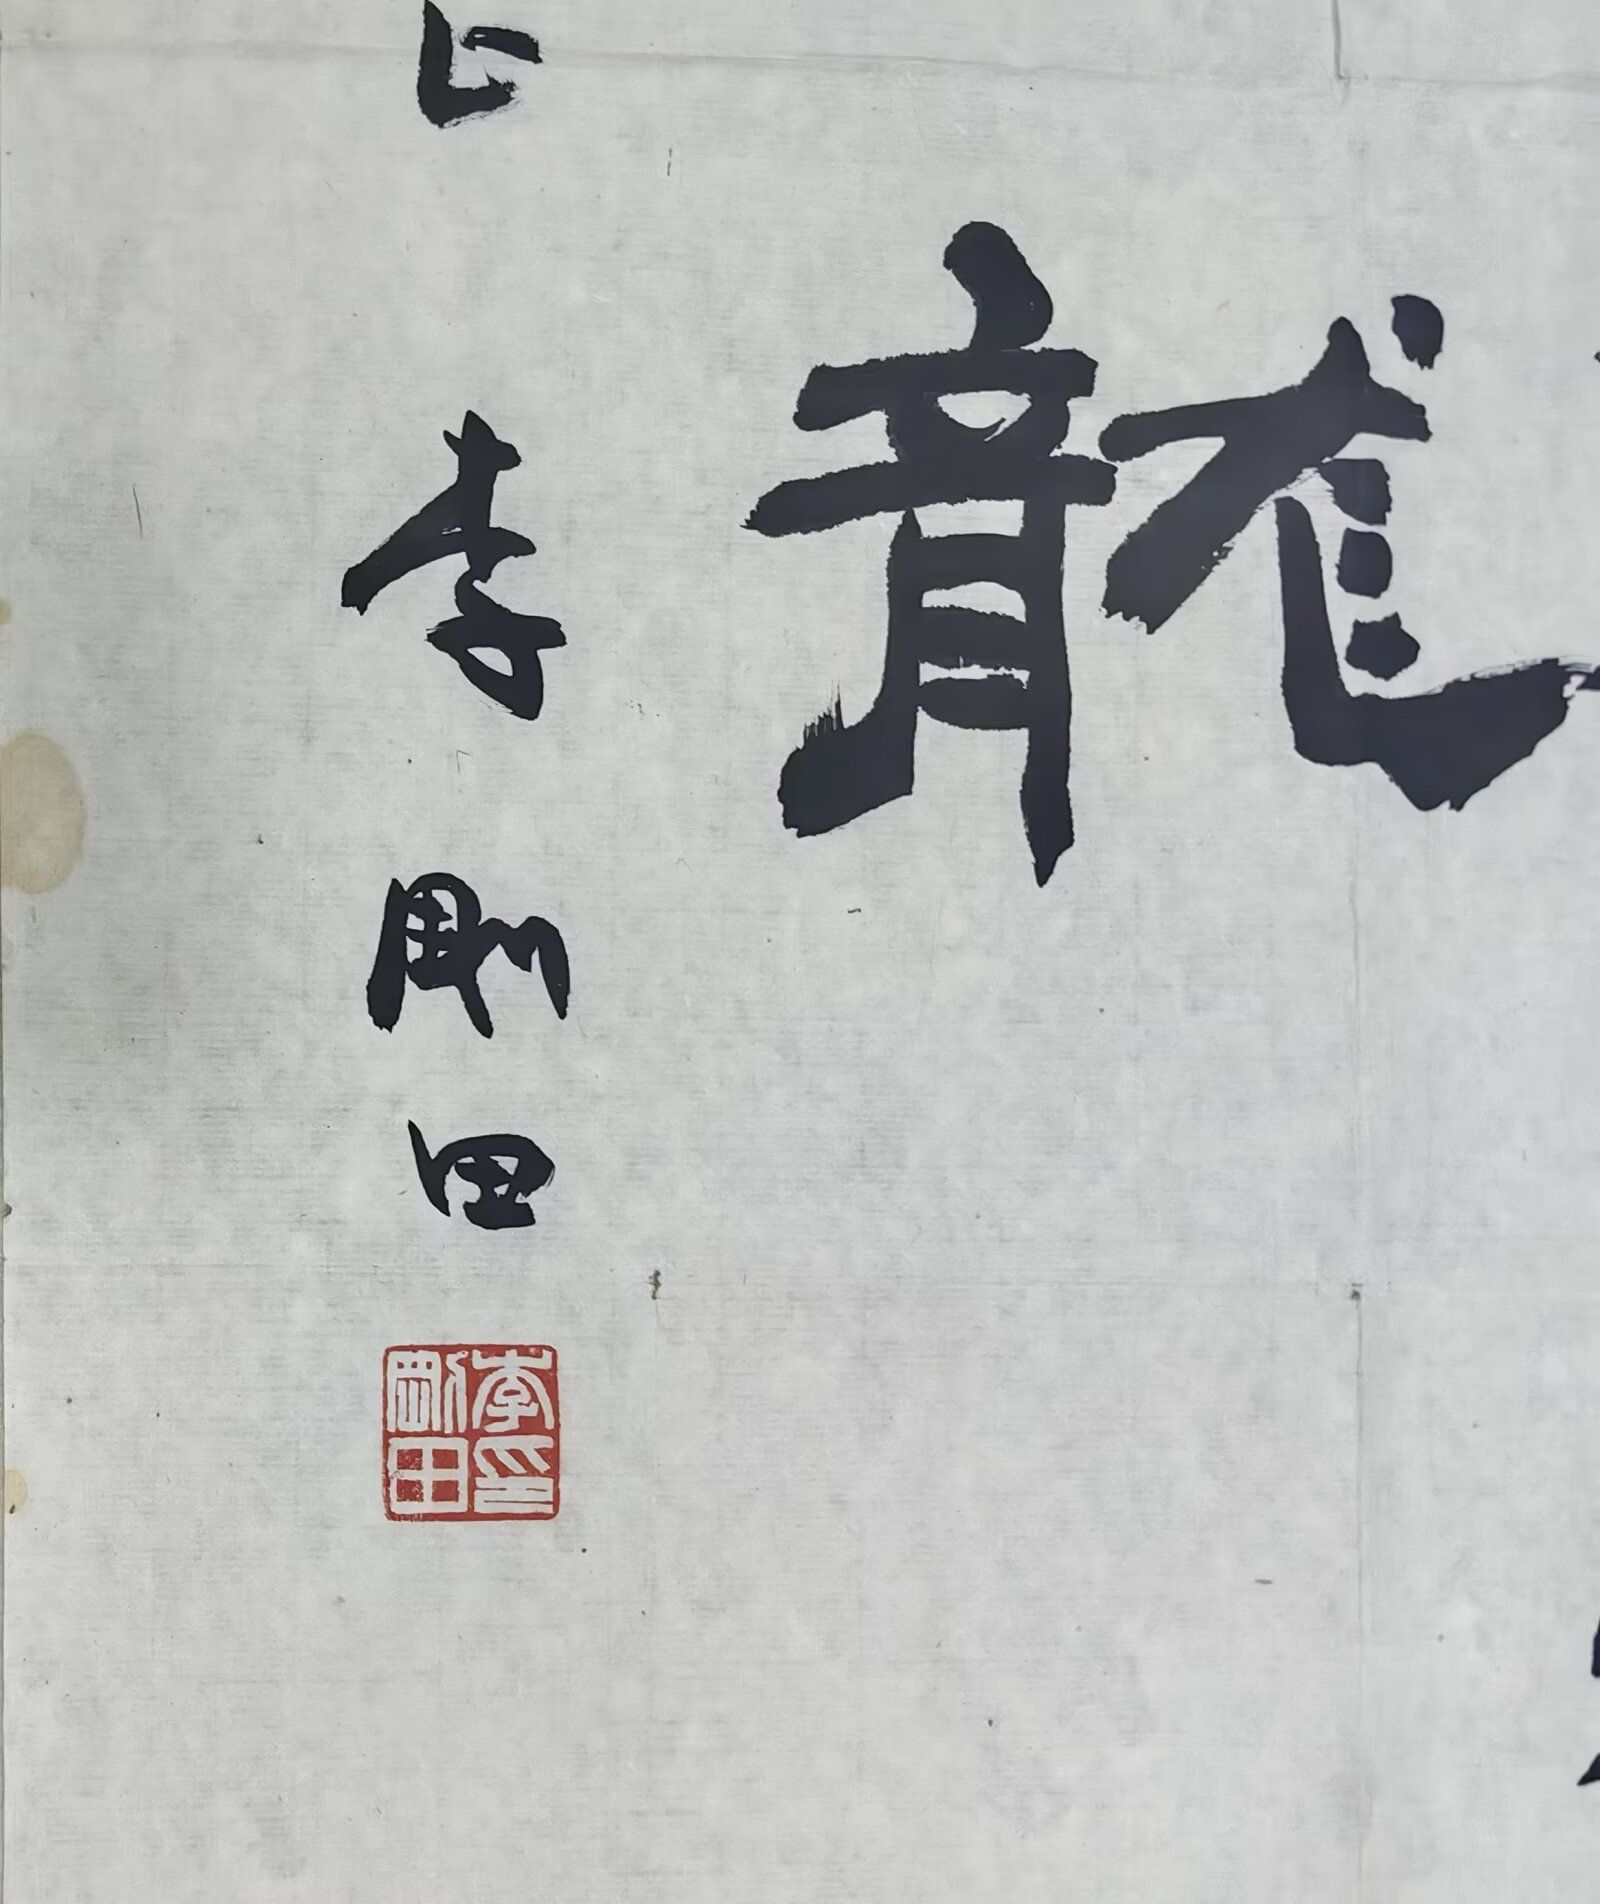 龍
李剛田
李剛田印